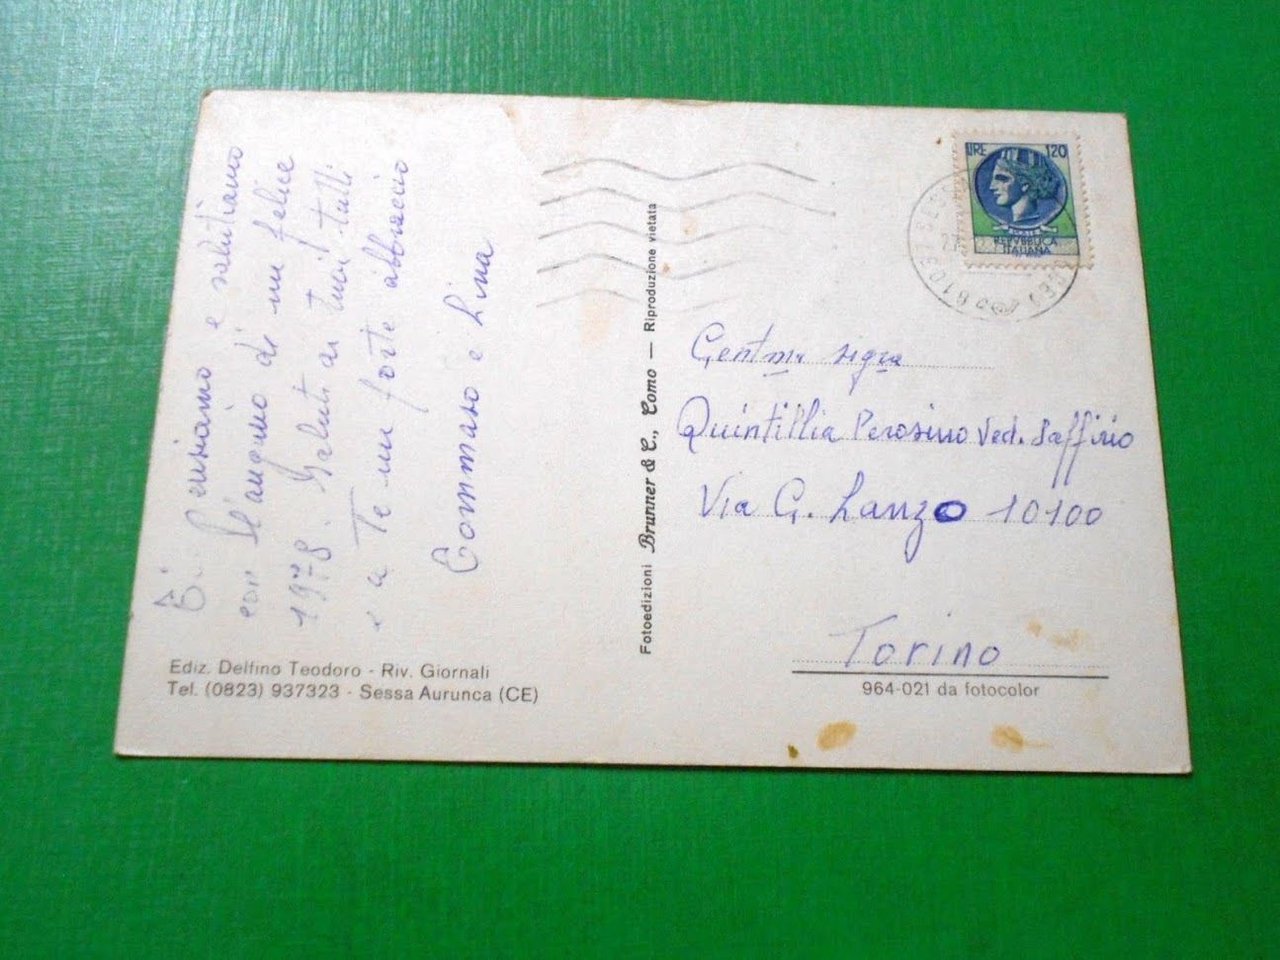 pensiamo e salutiamo
con l'augurio di un felice
1978. Saluti ai tuoi tutti
e a Te un forte abbraccio
Tommaso e Lina
Ediz. Delfino Teodoro - Riv. Giornali
Tel. (0823) 937323 - Sessa Aurunca (CE)
Fotoedizioni Brunner & C., Como — Riproduzione vietata
LIRE 120
REPVBBLICA
ITALIANA
Gentma sigra
Quintillia Perosino Ved. Saffirio
Via G. Lanzo 10100
Torino
964-021 da fotocolor